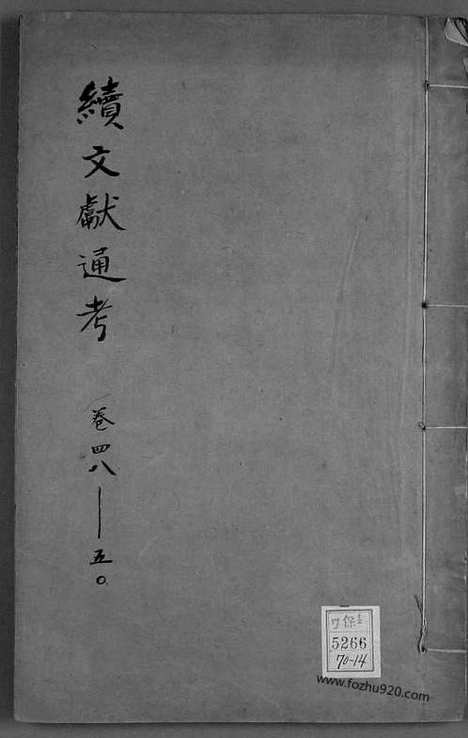 續文獻通考
卷四八—五〇
ワ保
5266
70-14
www.fozhu920.com